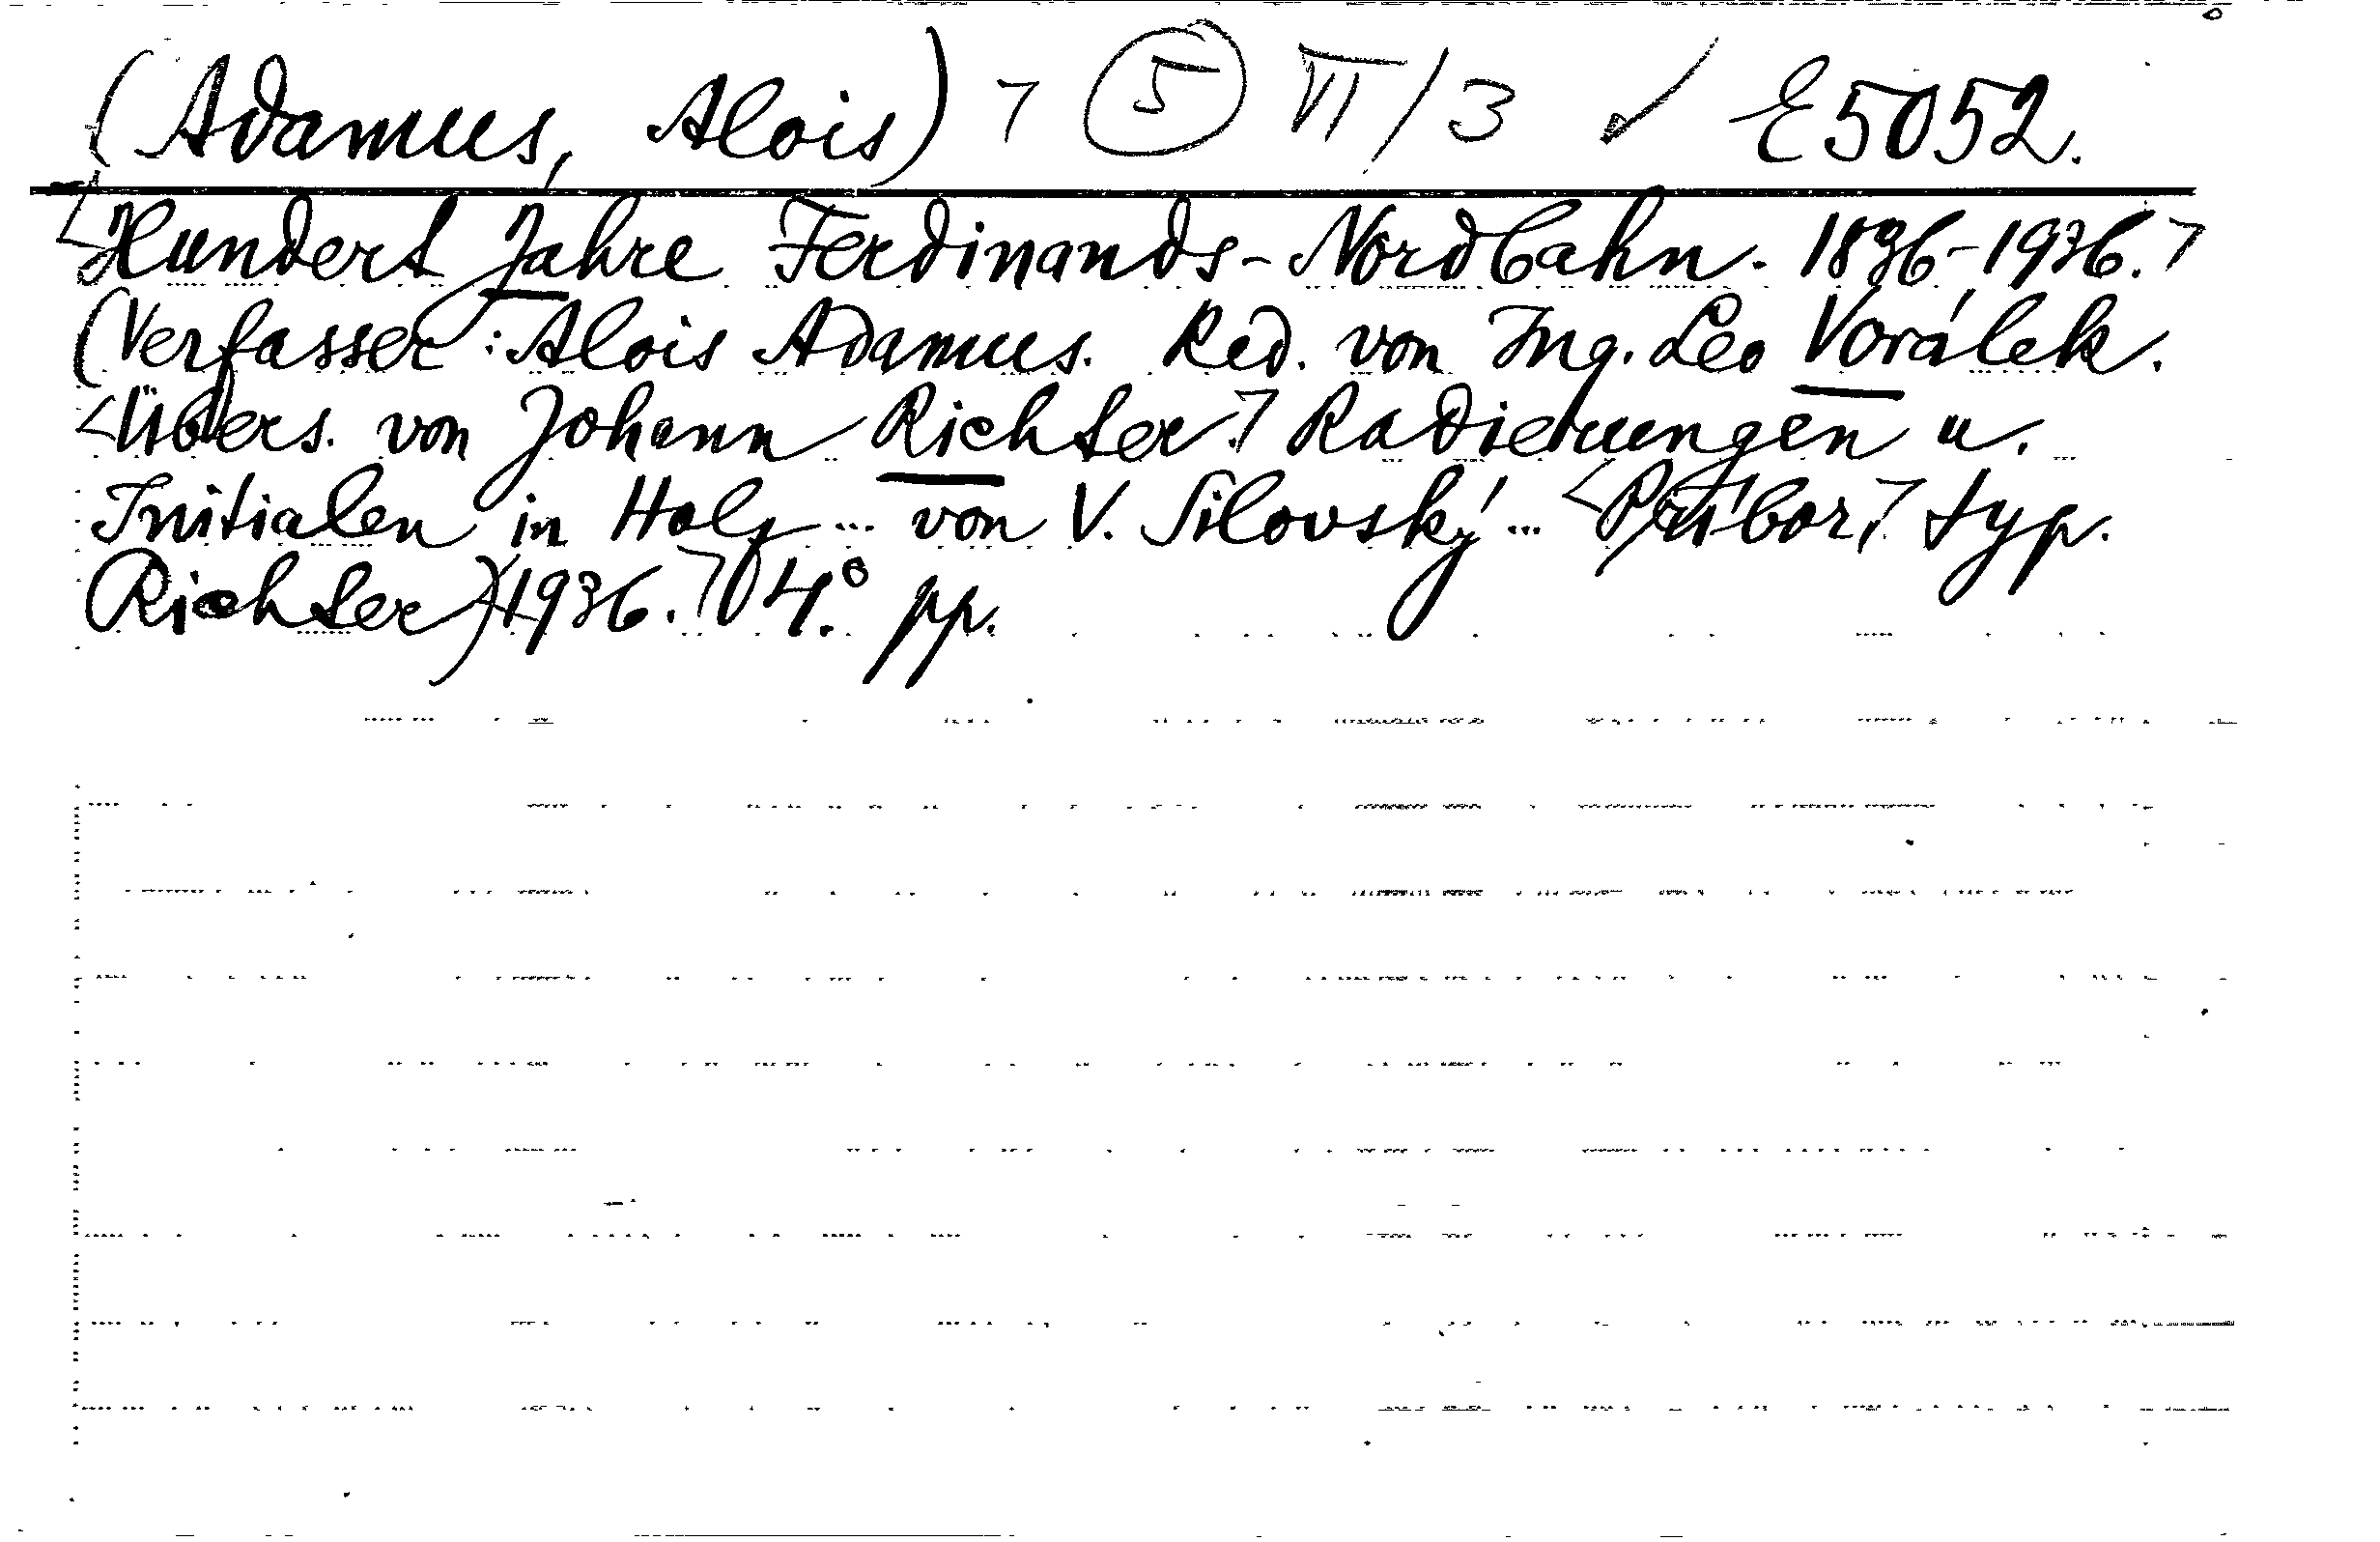 (Adamus, Alois) ⁊ 5 VI/3 ✓ E5052.
<Hundert Jahre Ferdinands-Nordbahn. 1836-1936.⁊
(Verfasser: Alois Adamus. Red. von Ing. Leo Vorálek.
<Übers. von Johann Richter.⁊ Radierungen u.
Initialen in Holz ... von V. Silovský ... <Příbor,⁊ typ.
Richter) <1936.⁊ 4.° pp.